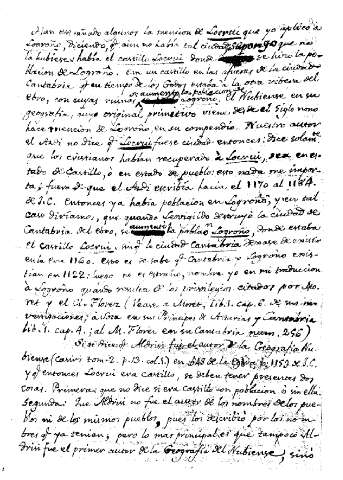 algunos la mencion de Locruii que yo aplico à
Logroño, diciendo, qᵉ aun no habia tal ciudad que no
la hubiese: habia el castillo Locrui donde se hizo la po-
blacion de Logroño. Era un castillo en las afueras de la ciudad de
Cantabria qᵉ en tiempo de los Godos estaba à la otra ribera del
ebro, con cuyas ruinas Logroño. El Nubiense en su
geografia, cuyo original primitivo viene desde el Siglo nono
hace mencion de Logroño, en su compendio. Nuestro autor
el Aedi no dice qᵉ Locrui fuese ciudad entonces: dice solam
que los cristianos habian recuperado à Locrui, sea en es-
tado de Castillo, ò en estado de pueblo: esto nada me impor-
ta; fuera de que el Aedi escribia hacia el 1170 al 1184
de J.C. Entonces ya habia poblacion en Logroño, y en tal
caso diriamos, que quando Leovigildo destruyò la ciudad de
Cantabria del ebro, se la poblacᵒⁿ Logroño, donde estaba
el castillo Locrui, la ciudad Cantabria dexase de existir
en la era 1160. Esto es de sobe qᵉ Cantabria y Logroño exis-
tian en 1122: luego no es estraño, nombre yo en mi traduccion
à Logroño quando resulta de los privilegios citados por Mo-
ret y el Mᵗʳᵒ Florez (Vease à Moret, lib. 1. cap. 6. de sus in-
vestigaciones; à Sota en sus Principes de Asturias y Cantabria
lib. 1. cap. 4; al M. Florez en su Cantabria num. 256)
Si se dice qᵉ Aldrisi fue el autor de la Geografia Nu-
biense (Casiri tom. 2. p. 13. col. 1) en 548 de la Egira, ò 1153 de J.C.
y qᵉ entonces Locrui era castillo, se deben tener presentes dos
cosas. Primera: que no dice si era castillo con poblacion ò sin ella.
Segunda: que Aldrisi no fue el autor de los nombres de los pue-
blos, ni de los mismos pueblos, pues los describiò por los nom-
bres qᵉ ya tenian; pero lo mas principal es que tampoco Al-
drisi fue el primer autor de la Geografia del Nubiense, sinò